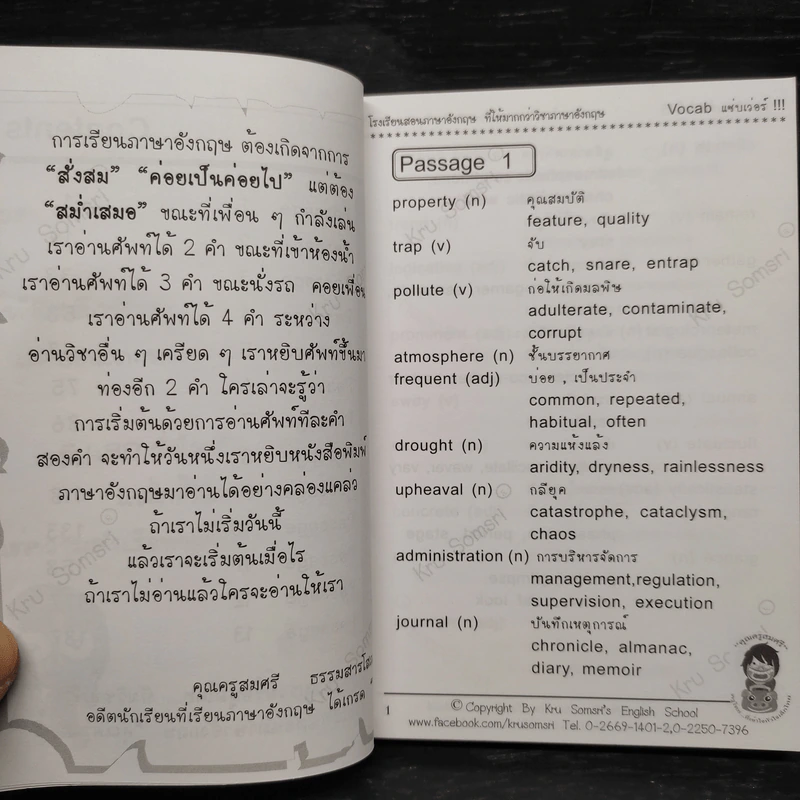 การเรียนภาษาอังกฤษ ต้องเกิดจากการ
“สั่งสม” “ค่อยเป็นค่อยไป” แต่ต้อง
“สม่ำเสมอ” ขณะที่เพื่อน ๆ กำลังเล่น
เราอ่านศัพท์ได้ 2 คำ ขณะที่เข้าห้องน้ำ
เราอ่านศัพท์ได้ 3 คำ ขณะนั่งรถ คอยเพื่อน
เราอ่านศัพท์ได้ 4 คำ ระหว่าง
อ่านวิชาอื่น ๆ เครียด ๆ เราหยิบศัพท์ขึ้นมา
ท่องอีก 2 คำ ใครเล่าจะรู้ว่า
การเริ่มต้นด้วยการอ่านศัพท์ทีละคำ
สองคำ จะทำให้วันหนึ่งเราหยิบหนังสือพิมพ์
ภาษาอังกฤษมาอ่านได้อย่างคล่องแคล่ว
ถ้าเราไม่เริ่มวันนี้
แล้วเราจะเริ่มต้นเมื่อไร
ถ้าเราไม่อ่านแล้วใครจะอ่านให้เรา
คุณครูสมศรี ธรรมสารโสภณ
อดีตนักเรียนที่เรียนภาษาอังกฤษ ได้เกรด
โรงเรียนสอนภาษาอังกฤษ ที่ให้มากกว่าวิชาภาษาอังกฤษ Vocab แซ่บเว่อร์ !!!
Passage 1
property (n) คุณสมบัติ
feature, quality
trap (v) จับ
catch, snare, entrap
pollute (v) ก่อให้เกิดมลพิษ
adulterate, contaminate,
corrupt
atmosphere (n) ชั้นบรรยากาศ
frequent (adj) บ่อย , เป็นประจำ
common, repeated,
habitual, often
drought (n) ความแห้งแล้ง
aridity, dryness, rainlessness
upheaval (n) กลียุค
catastrophe, cataclysm,
chaos
administration (n) การบริหารจัดการ
management,regulation,
supervision, execution
journal (n) บันทึกเหตุการณ์
chronicle, almanac,
diary, memoir
1 © Copyright By Kru Somsri's English School
www.facebook.com/krusomsri Tel. 0-2669-1401-2,0-2250-7396